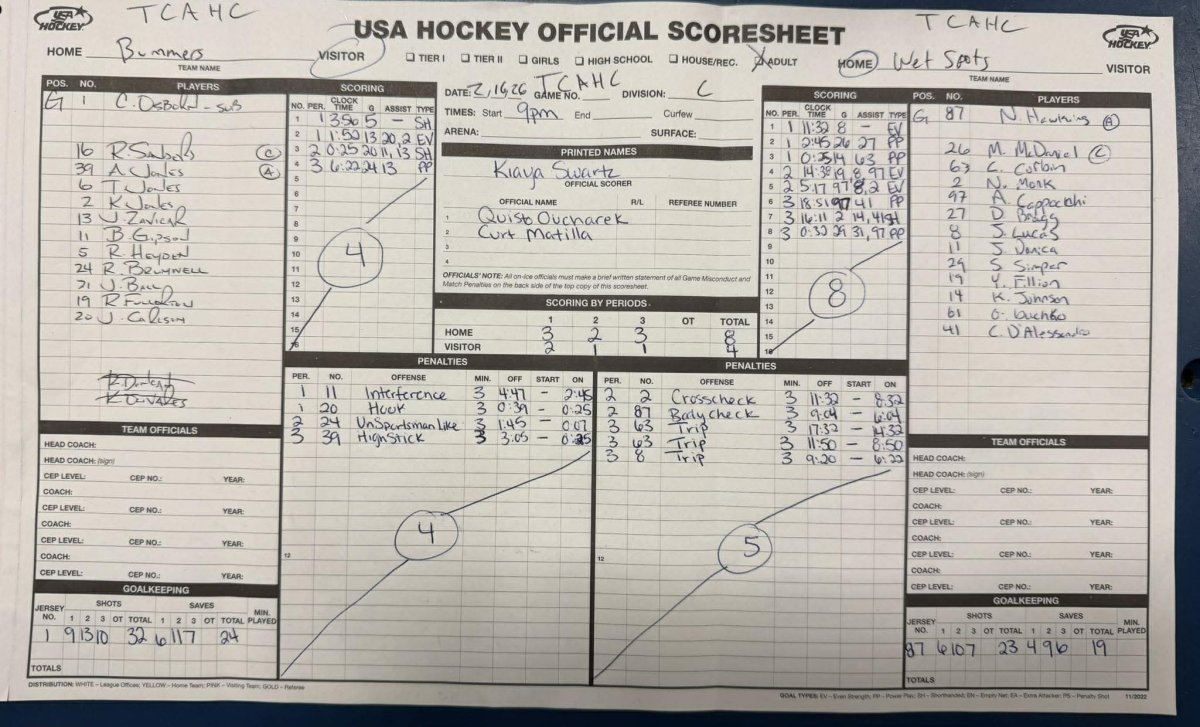 TCAHC
TCAHC
USA HOCKEY
USA HOCKEY OFFICIAL SCORESHEET
USA HOCKEY
HOME Bummers VISITOR
TEAM NAME
TIER I TIER II GIRLS HIGH SCHOOL HOUSE/REC. ADULT
HOME Wet Spots VISITOR
TEAM NAME
POS. NO. PLAYERS
G 1 C. Osborn - sub
16 R. (C)
39 A. Jones (A)
6 T. Jones
2 K. Jones
13 J. Zavicar
11 B. Gipson
5 R. Hayden
24 R. Brumwell
21 J. Ball
19 R. Fullerton
20 J. Carlson
SCORING
NO. PER. CLOCK TIME G ASSIST TYPE
1 1 3:56 5 - SH
2 1 1:52 13 20, 2 EV
3 2 0:25 20 11, 13 SH
4 3 6:22 24 13 PP
5
6
7
8
9
10
11
12
13
14
15
16
4
DATE: 2/16/26 GAME NO. TCAHC DIVISION: C
TIMES: Start 9pm End Curfew
ARENA: SURFACE:
PRINTED NAMES
Kiaya Swartz
OFFICIAL SCORER
OFFICIAL NAME R/L REFEREE NUMBER
1 Quisto Ouchacek
2 Curt Matilla
3
4
OFFICIALS' NOTE: All on-ice officials must make a brief written statement of all Game Misconduct and
Match Penalties on the back side of the top copy of this scoresheet.
SCORING BY PERIODS
1 2 3 OT TOTAL
HOME 3 2 3 8
VISITOR 2 1 1 4
SCORING
NO. PER. CLOCK TIME G ASSIST TYPE
1 1 11:32 8 - EV
2 1 2:45 26 27 PP
3 1 0:25 14 63 PP
4 2 14:38 19 8, 97 EV
5 2 5:17 97 8, 2 EV
6 3 18:51 97 41 PP
7 3 16:11 2 14, 41 SH
8 3 0:32 29 31, 97 PP
9
10
11
12
13
14
15
16
8
POS. NO. PLAYERS
G 87 N. Hawkins (A)
26 M. McDaniel (C)
63 C. Corbin
2 N. Monk
97 A. Cappocchi
27 D. Bragg
8 J. Lucas
11 J. Vonica
29 S. Simper
19 Y. Fillion
14 K. Johnson
61 G.
41 C. D'Alessandro
PENALTIES
PER. NO. OFFENSE MIN. OFF START ON
1 11 Interference 3 4:47 - 2:45
1 20 Hook 3 0:39 - 0:25
2 24 Unsportsmanlike 3 1:45 - 0:07
3 39 Highstick 3 3:05 - 0:25
12
4
PENALTIES
PER. NO. OFFENSE MIN. OFF START ON
2 2 Crosscheck 3 11:32 - 8:32
2 87 Bodycheck 3 9:04 - 6:04
3 63 Trip 3 17:32 - 14:32
3 63 Trip 3 11:50 - 8:50
3 8 Trip 3 9:20 - 6:22
12
5
TEAM OFFICIALS
HEAD COACH:
HEAD COACH: (sign)
CEP LEVEL: CEP NO.: YEAR:
COACH:
CEP LEVEL: CEP NO.: YEAR:
COACH:
CEP LEVEL: CEP NO.: YEAR:
COACH:
CEP LEVEL: CEP NO.: YEAR:
GOALKEEPING
JERSEY NO. SHOTS SAVES MIN. PLAYED
1 2 3 OT TOTAL 1 2 3 OT TOTAL
1 9 13 10 32 6 11 7 24
TOTALS
TEAM OFFICIALS
HEAD COACH:
HEAD COACH: (sign)
CEP LEVEL: CEP NO.: YEAR:
COACH:
CEP LEVEL: CEP NO.: YEAR:
COACH:
CEP LEVEL: CEP NO.: YEAR:
COACH:
CEP LEVEL: CEP NO.: YEAR:
GOALKEEPING
JERSEY NO. SHOTS SAVES MIN. PLAYED
1 2 3 OT TOTAL 1 2 3 OT TOTAL
87 6 10 7 23 4 9 6 19
TOTALS
DISTRIBUTION: WHITE – League Offices; YELLOW – Home Team; PINK – Visiting Team; GOLD – Referee
GOAL TYPES: EV – Even Strength; PP – Power Play; SH – Shorthanded; EN – Empty Net; EA – Extra Attacker; PS – Penalty Shot 11/2022